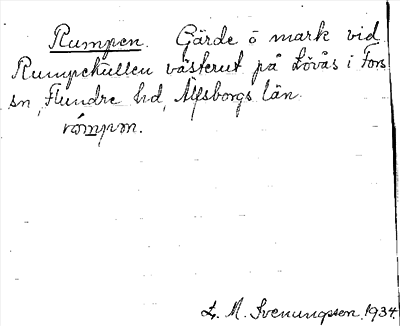 Rumpen. Gärde o mark vid
Rumpekullen västerut på Lövås i Fors
sn, Flundre hd, Älfsborgs län.
römpɷn.
L. M. Svenungsson. 1934.